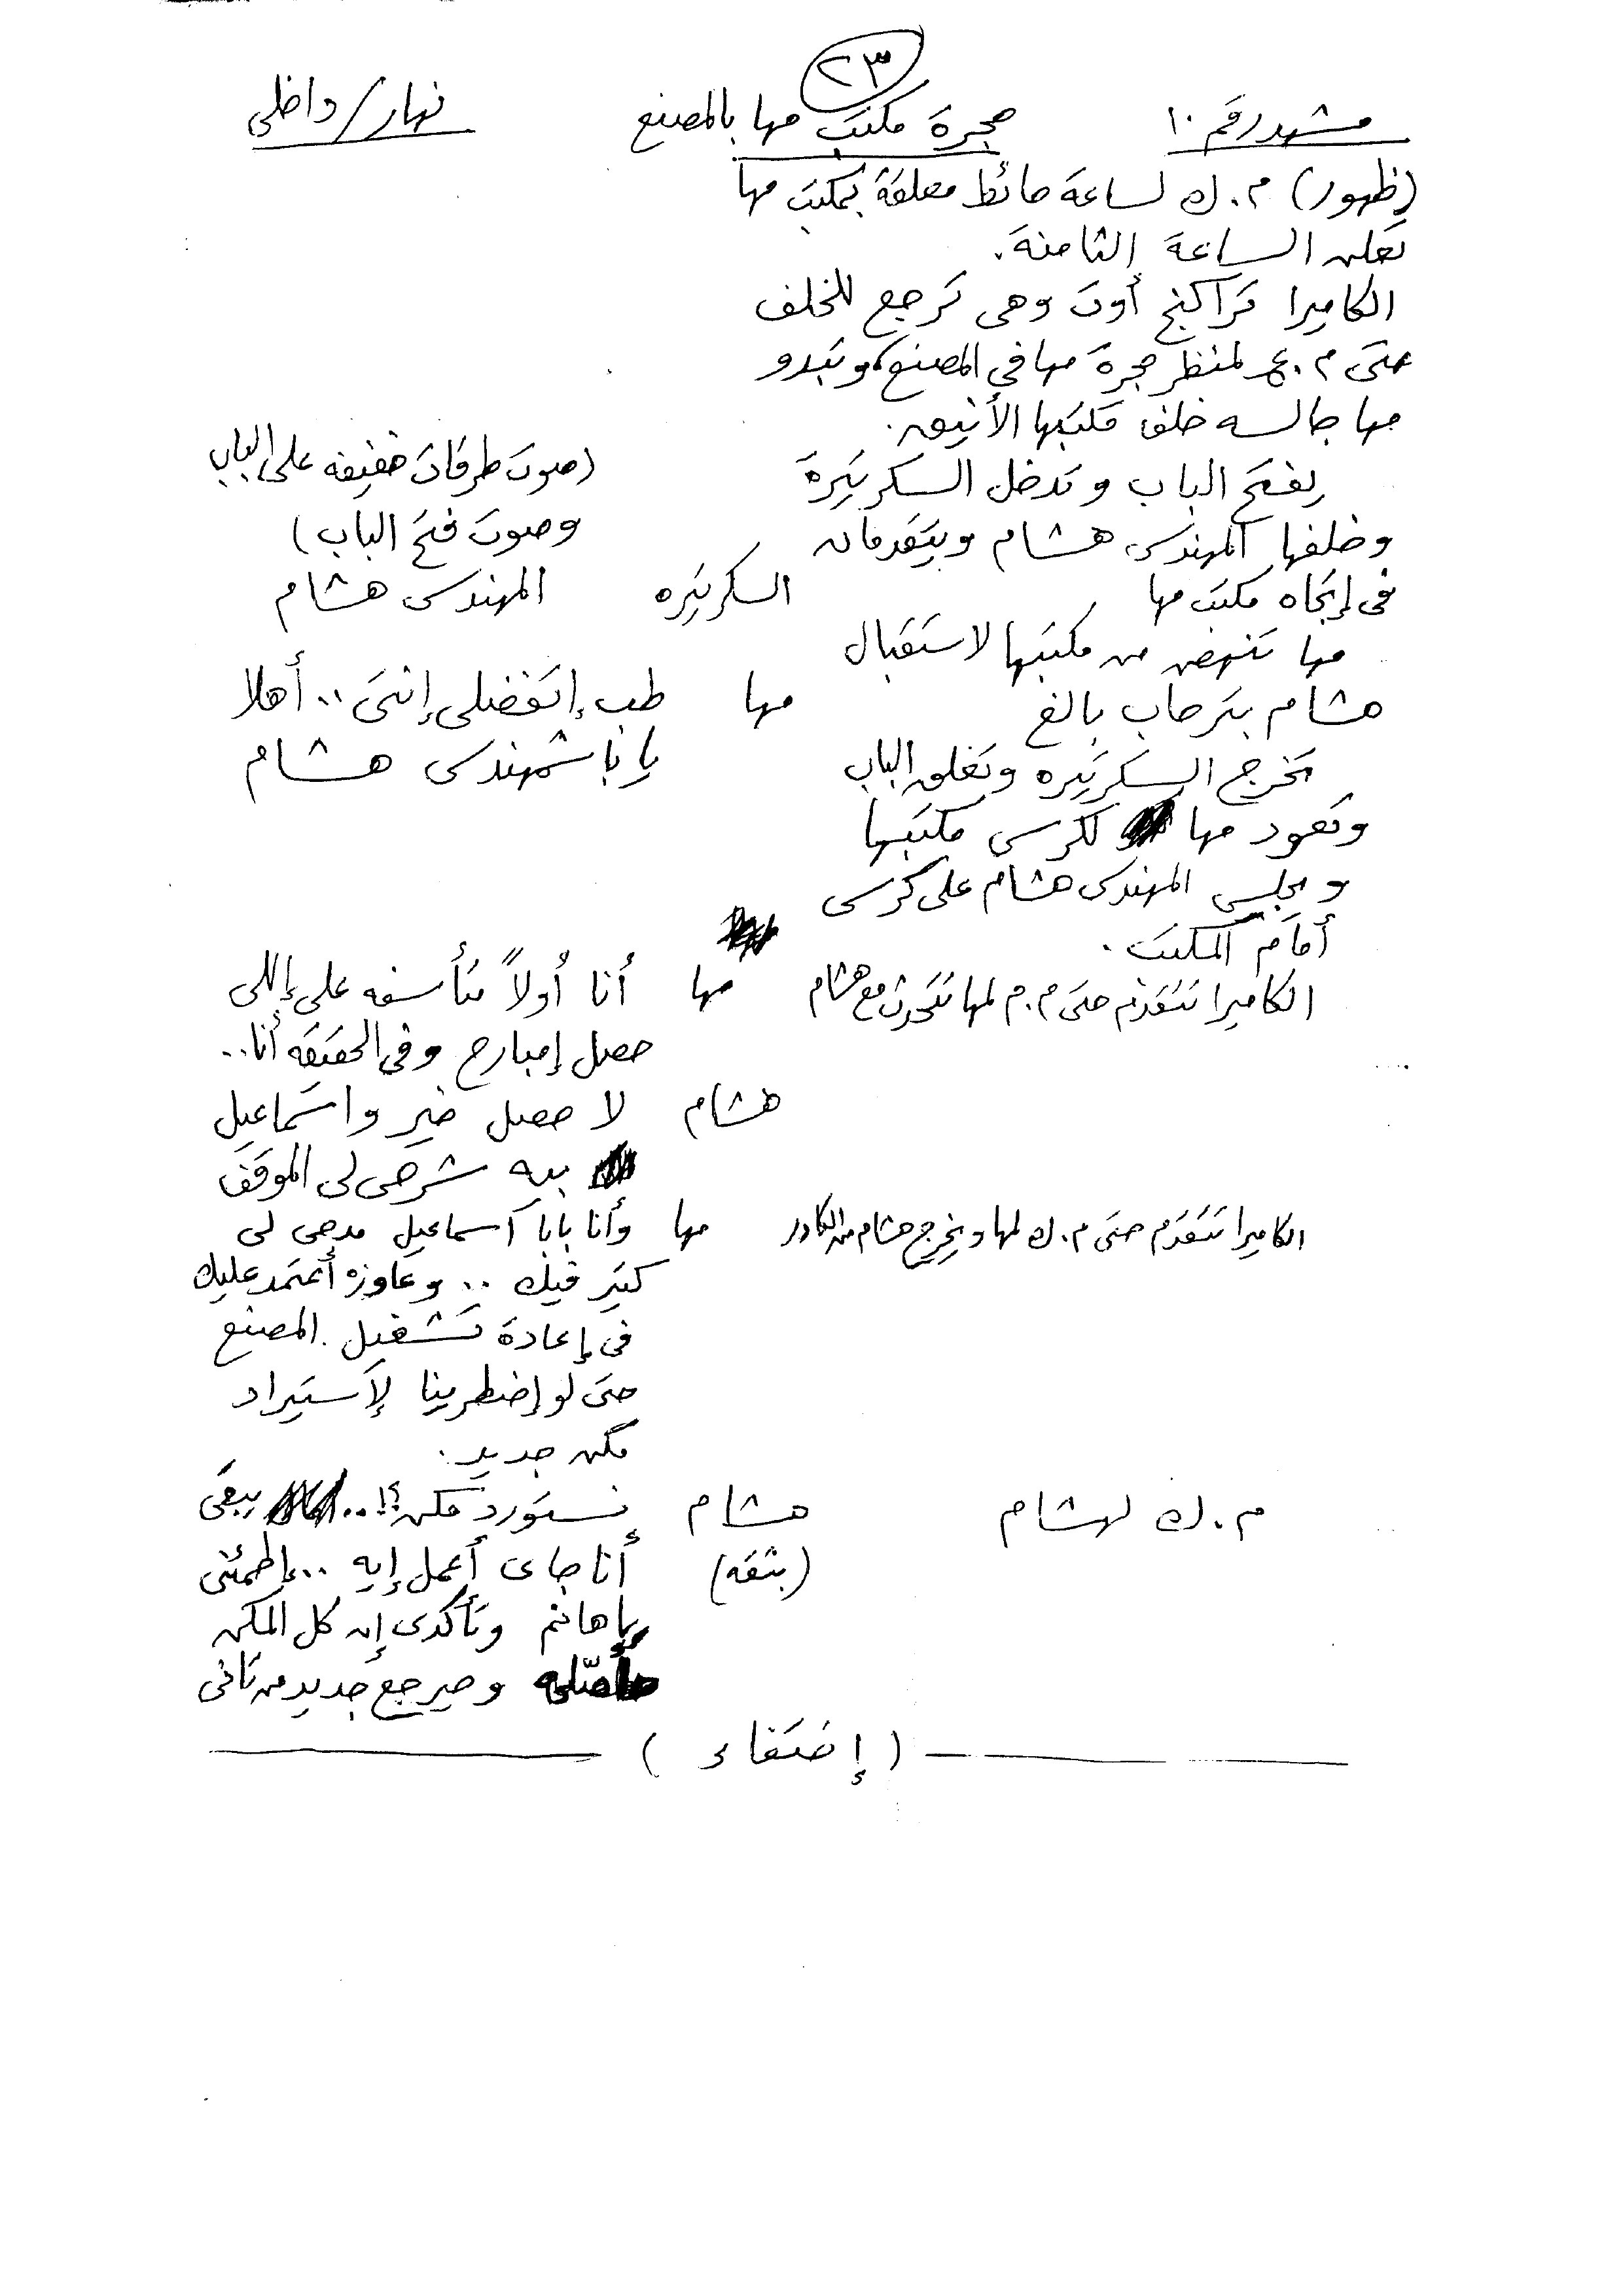 ٢٣
مشهد رقم ١٠ حجرة مكتب مها بالمصنع نهار/داخلى
(ظهور) م. ك لساعة حائط معلقة بمكتب مها
تعلن الساعة الثامنة.
الكاميرا تراكنج أوت وهى ترجع للخلف
حتى م. ع لمنظر حجرة مها في المصنع، وتبدو
مها جالسه خلف مكتبها الأنيق.
يفتح الباب وتدخل السكرتيرة (صوت طرقات خفيفه على الباب
وخلفها المهندس هشام ويتقدمان وصوت فتح الباب)
فى إتجاه مكتب مها السكرتيره المهندس هشام
مها تنهض من مكتبها لاستقبال
هشام بترحاب بالغ مها طب إتفضلى إنتى .. أهلا
تخرج السكرتيره وتغلق الباب يا باشمهندس هشام
وتعود مها لكرسى مكتبها
ويجلس المهندس هشام على كرسى
أمام المكتب.
الكاميرا تتقدم حتى م. م لمها تتحدث مع هشام مها أنا أولاً متأسفه على إللى
حصل إمبارح وفى الحقيقه أنا..
هشام لا حصل خير واسماعيل
بيه شرحى لى الموقف
الكاميرا تتقدم حتى م. ك لمها ويخرج هشام من الكادر مها وأنا بابا اسماعيل مدحى لى
كتير فيك .. وعاوزه أعتمد عليك
فى إعادة تشغيل المصنع
حتى لو إضطرينا لإستيراد
مكن جديد.
م. ك لهشام هشام نستورد مكن؟!.. يبقى
(بثقه) أنا جاى أعمل إيه .. إطمئنى
يا هانم وتأكدى إن كل المكن
حأصلحه وحيرجع جديد من تانى
(إختفاء)